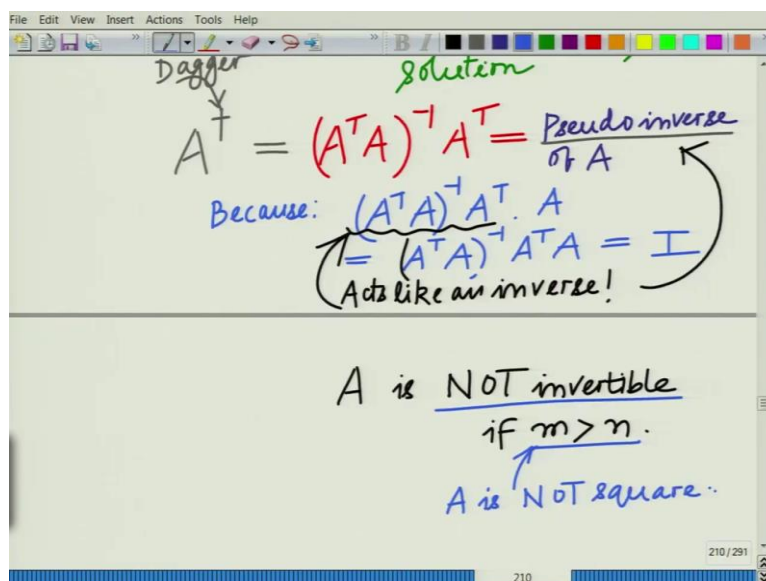 File Edit View Insert Actions Tools Help
Dagger solution
A† = (AᵀA)⁻¹ Aᵀ = Pseudo inverse
of A
Because: (AᵀA)⁻¹ Aᵀ. A
= (AᵀA)⁻¹ AᵀA = I
Acts like an inverse!
A is NOT invertible
if m > n.
A is NOT square.
210/291
210